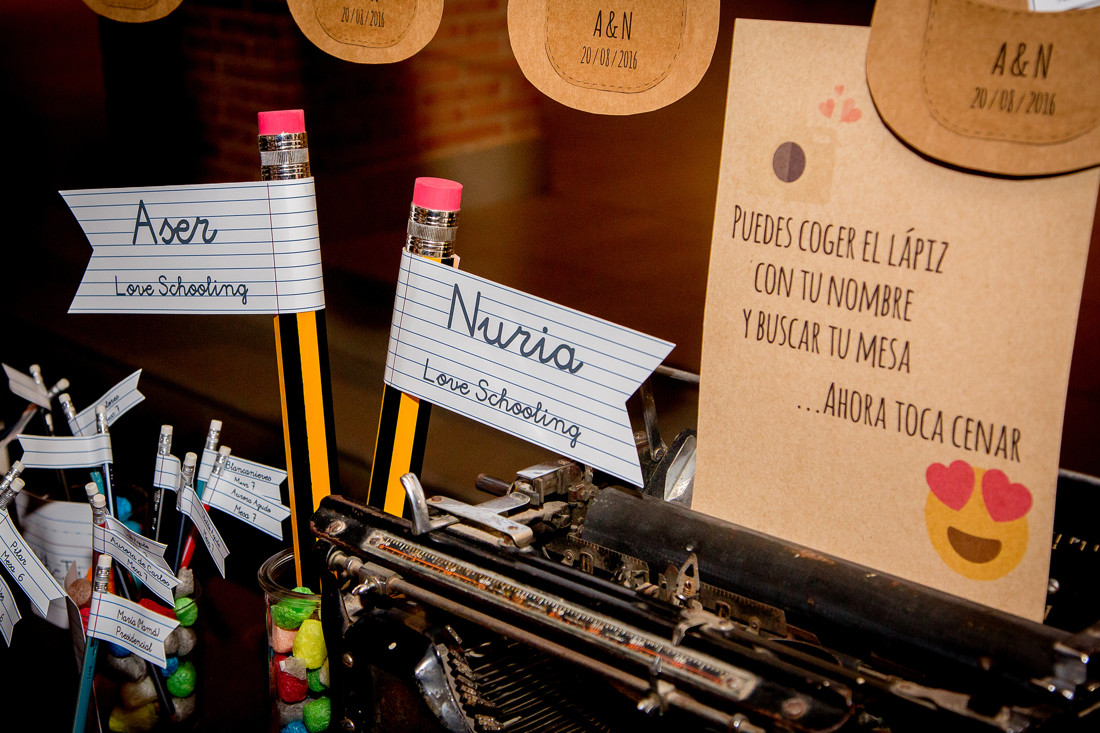 20/08/2016
A & N
20/08/2016
A & N
20/08/2016
Aser
Love Schooling
Nuria
Love Schooling
PUEDES COGER EL LÁPIZ
CON TU NOMBRE
Y BUSCAR TU MESA
...AHORA TOCA CENAR
Blancanieves
Mesa 7
Aurora Agudo
Mesa 7
Pilar
Mesa 6
Aurora de Carlos
Mesa 7
María (Mamá)
Presidencial